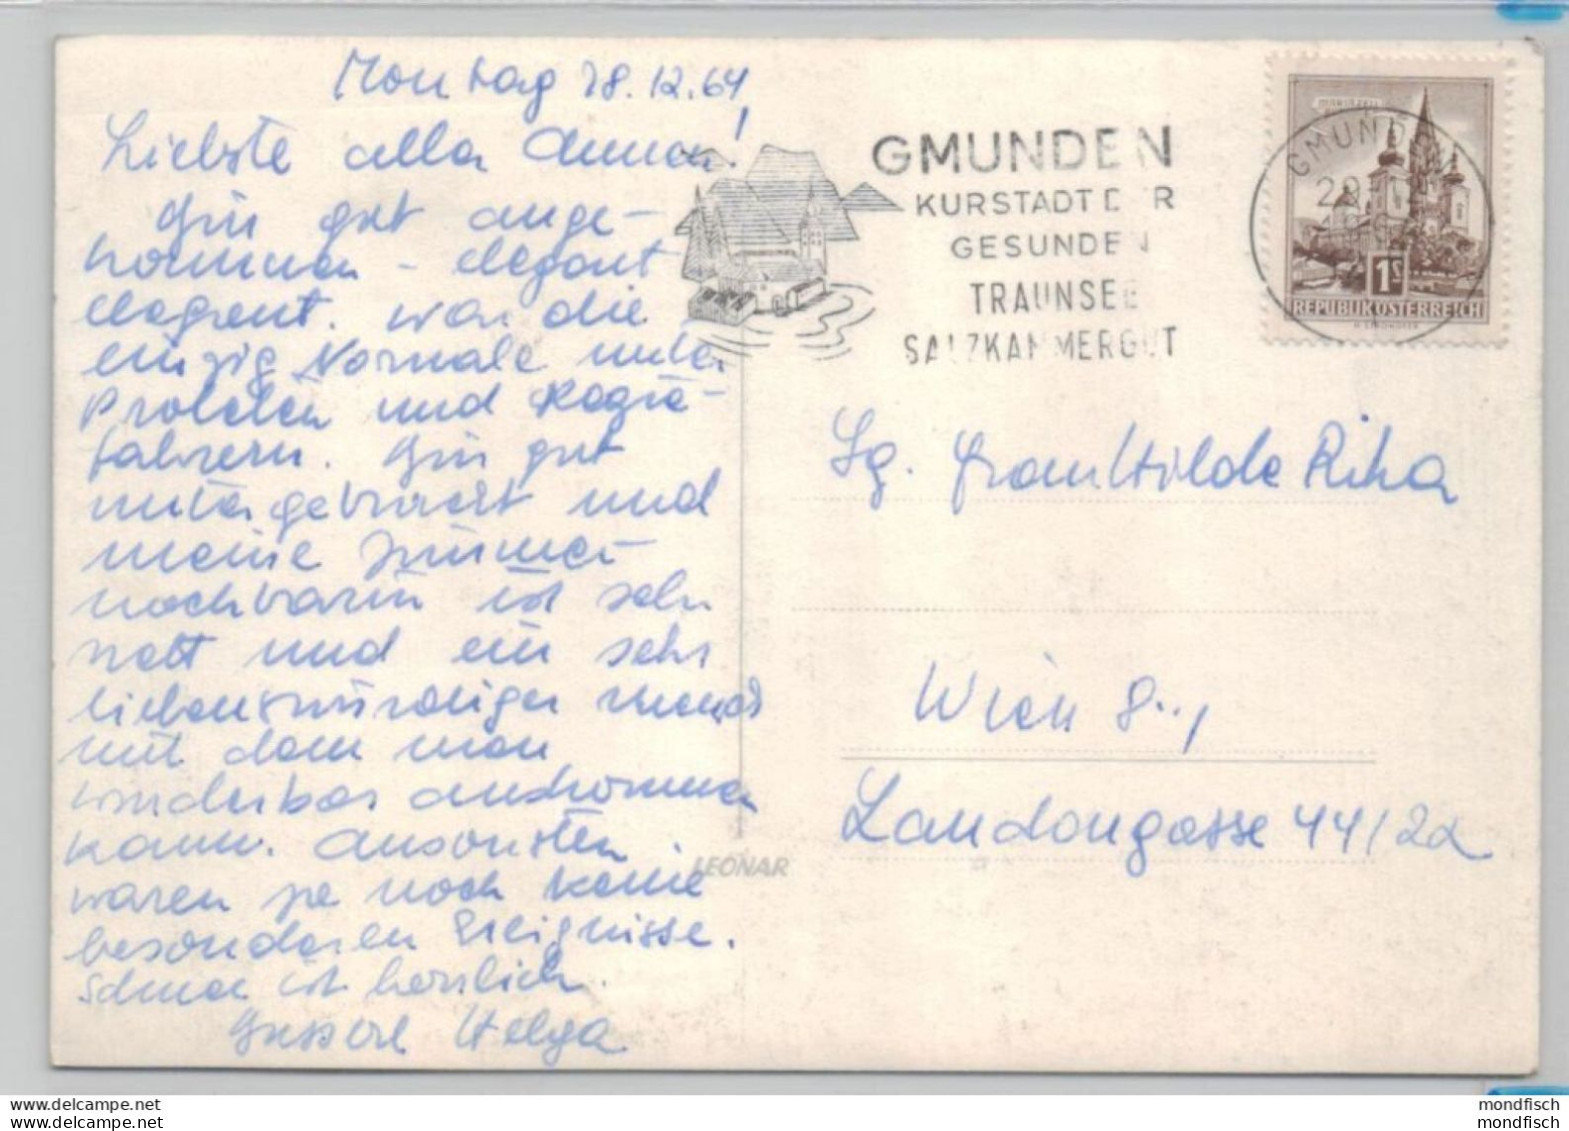 Montag 28.12.64
Liebste alla
Bin gut ange-
kommen - elegant
elegant. war die
einzig Normale unter
Proleten und
fahrern. Bin gut
untergebracht und
meine Zimmer-
nachbarin ist sehr
nett und ein sehr
liebenswürdiger Mensch
mit dem man
wunderbar auskommen
kann. Ansonsten
waren ja noch keine
besonderen Ereignisse.
ist herrlich.
Busserl Helga
GMUNDEN
KURSTADT DER
GESUNDEN
TRAUNSEE
SALZKAMMERGUT
GMUNDEN
MARIAZELL
1S
REPUBLIK ÖSTERREICH
Sg. Frau Hilde Riha
Wien 8.,
Laudongasse 44/2a
LEONAR
mondfisch
mondfisch